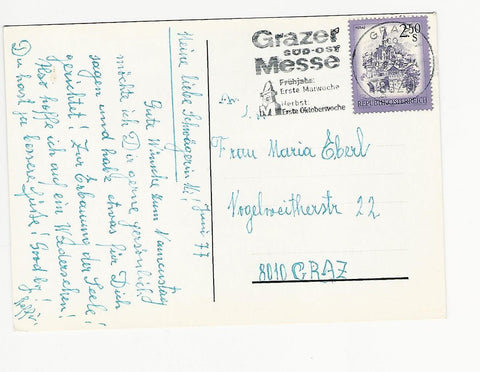 Meine liebe Schwägerin M.! Juni 77
Gute Wünsche zum Namenstag
möchte ich Dir gerne persönlich
sagen und habe etwas für Dich
gerichtet! Zur Erbauung der Seele!
Also hoffe ich auf ein Wiedersehen!
Du hast ja bessere Füße! Good by!
Grazer
SÜD-OST
Messe
Frühjahr:
Erste Maiwoche
Herbst:
Erste Oktoberwoche
GRAZ
2.50
S
REPUBLIK ÖSTERREICH
Frau Maria Eberl
Vogelweitherstr 22
8010 GRAZ